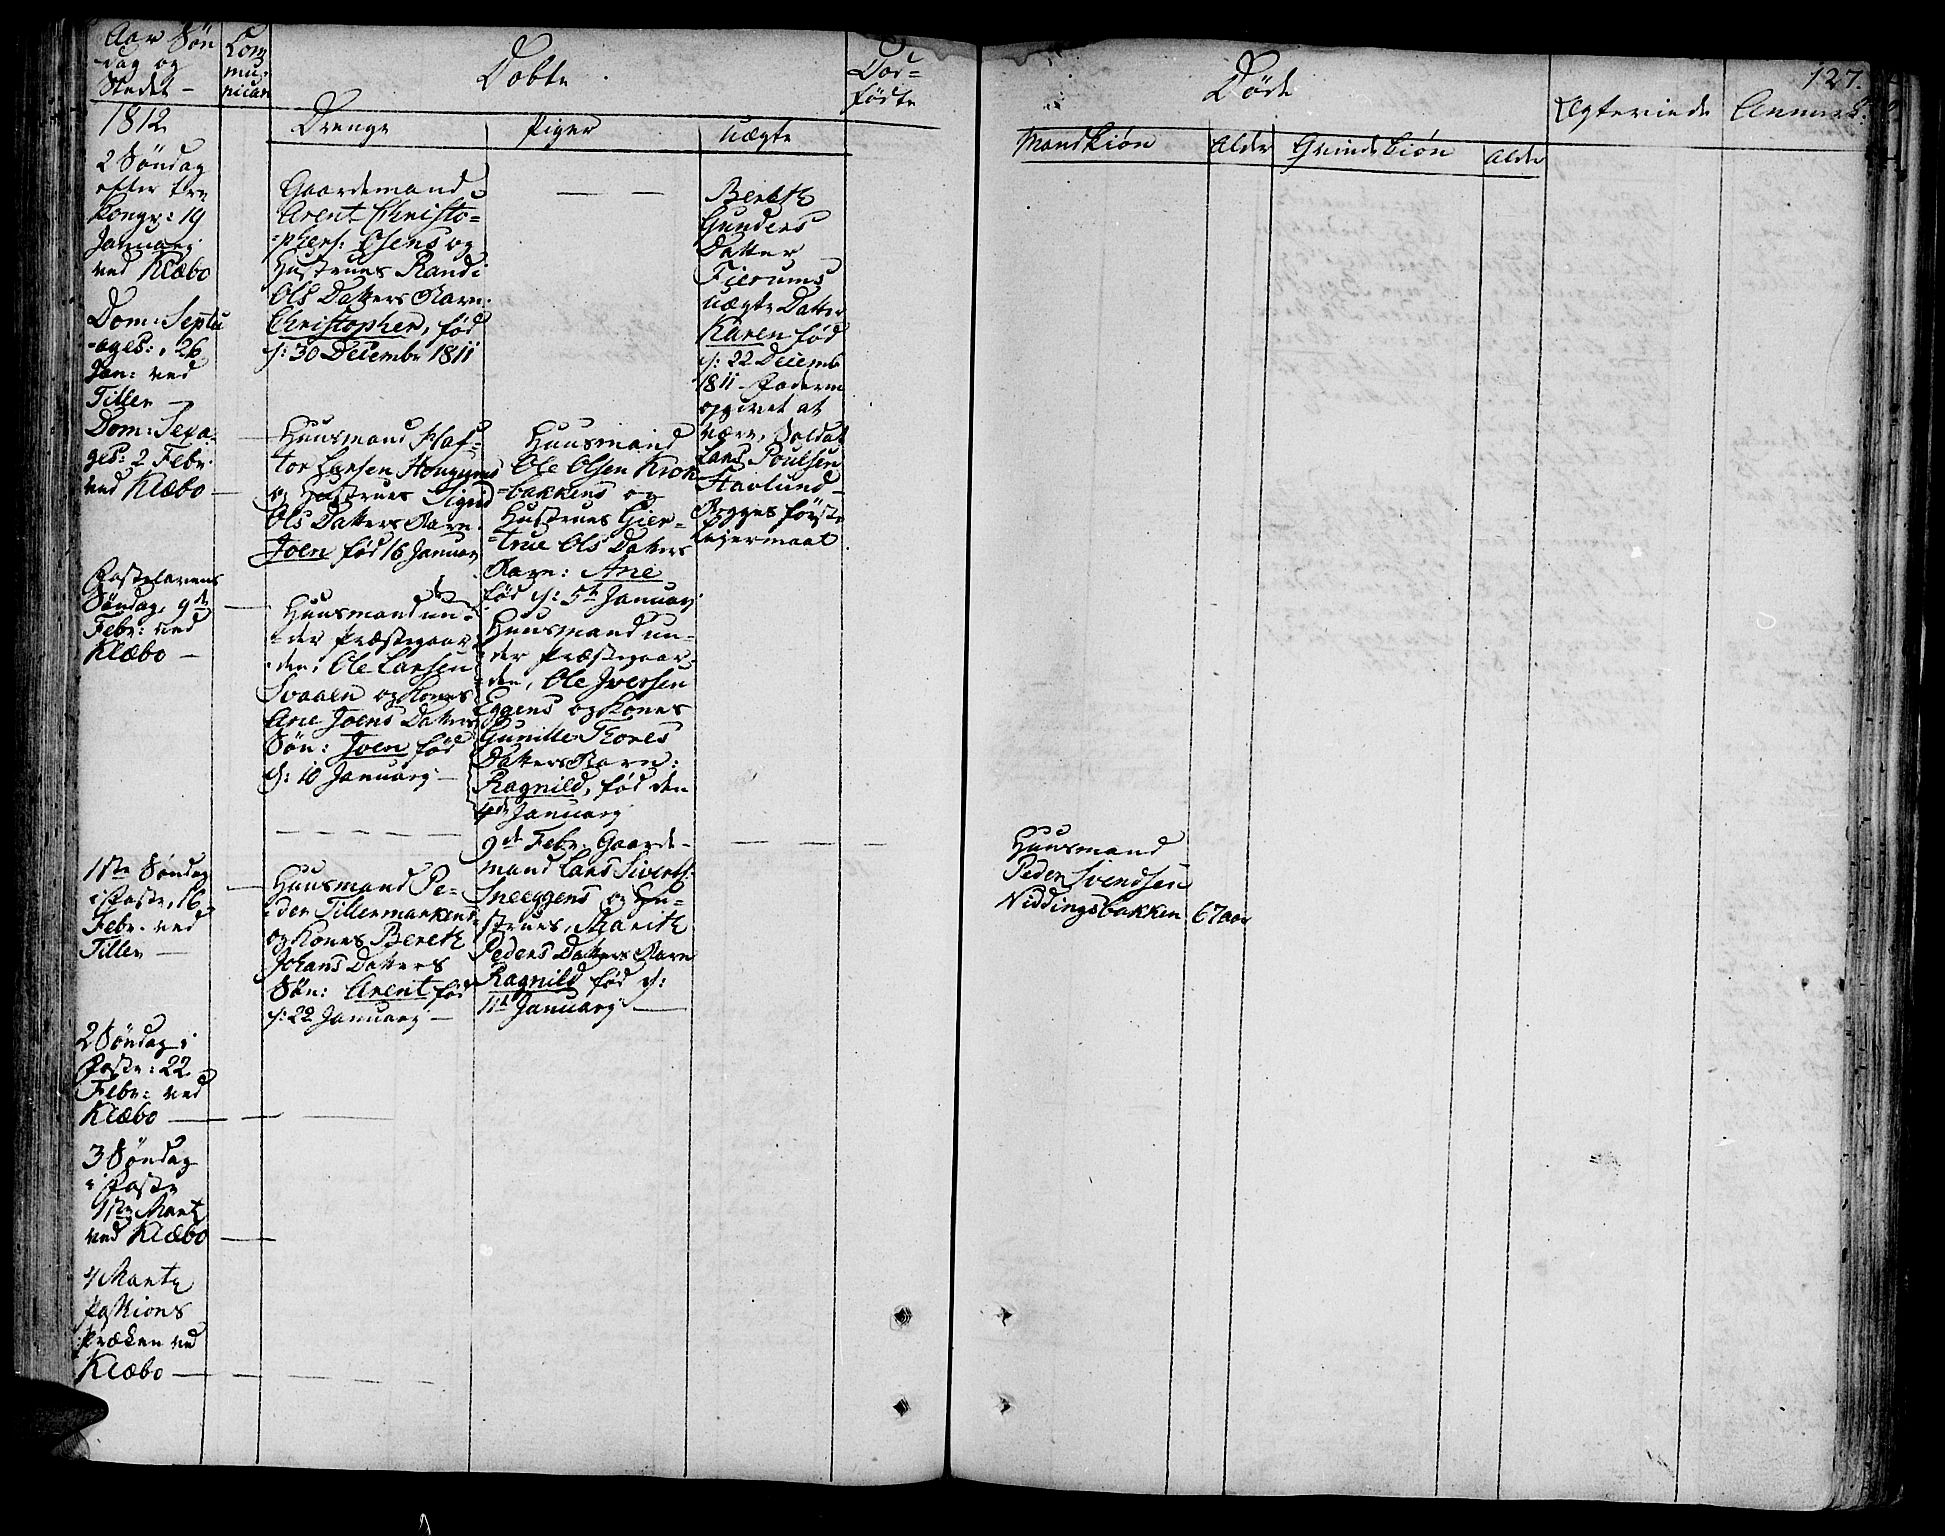 Aar Søn
dag og
Stedet -
Com
mu-
nican
Døbte.
Død=
fødte
Døde
Ægteviede
Anmærk:
127.
1812
Drenge
Piger
uægte
Mandkiøn
Alder
Qvindekiøn
Alder
2 Søndag
efter tre
Konger: 19
Januarj
ved Klæbo
Gaardemand
Arent Christo=
=phers: Osens og
Hustrues Randi
Ols Datters Barn:
Christopher, fød
d: 30 Decembr 1811
Bereth
Gunders
Datter
Fierums
uægte Datter
Karen fød
d: 22 Decemb
1811 - Faderen
opgivet at
være, Soldat
Lars Poulsen
Havlund -
Begges første
Leiermaal
Dom: Septu
=ages:, 26
Jan: ved
Tiller -
Dom: Sexa-
ges: 2 Febr:
ved Klæbo -
Huusmand Elaf=
tor Hansen
og Hustrues Sigrid
Ols Datters Barn
Joen fød 16 Januarj
Huusmand
Ole Olsen Krok
=bakkens og
Hustrues Gier=
=true Ols Datters
Barn: Ane
fød d: 5te Januarj
Fastelavens
Søndag, 9de
Febr: ved
Klæbo -
Huusmand un=
=der Præstegaar
=den, Ole Larsen
Svaaen og Kones
Ane Joens Datters
Søn: Joen fød
d: 10 Januarj -
Huusmand un=
=der Præstegaar=
=den, Ole Iversen
Eggens og Kones
Gunille Thores
Datters Barn:
Ragnild, fød den
4de Januarj
1ste Søndag
i Faste, 16
Febr. ved
Tiller -
Huusmand Pe=
=der Tillermarkens
og Kones Bereth
Johans Datters
Søn: Arent fød
d: 22 Januarj -
9de Febr. Gaarde-
mand Lars Siverts:
Sneeggens og Hu=
strues, Marith
Peders Datters Barn
Ragnild fød d:
11te Januarj -
Huusmand
Peder Svendsen
Niddingsbakken 67 aar
2 Søndag i
Faste: 22
Febr: ved
Klæbo -
3 Søndag
i Faste
1ste Martz
ved Klæbo -
4 Martz
Passions
Præken ved
Klæbo -